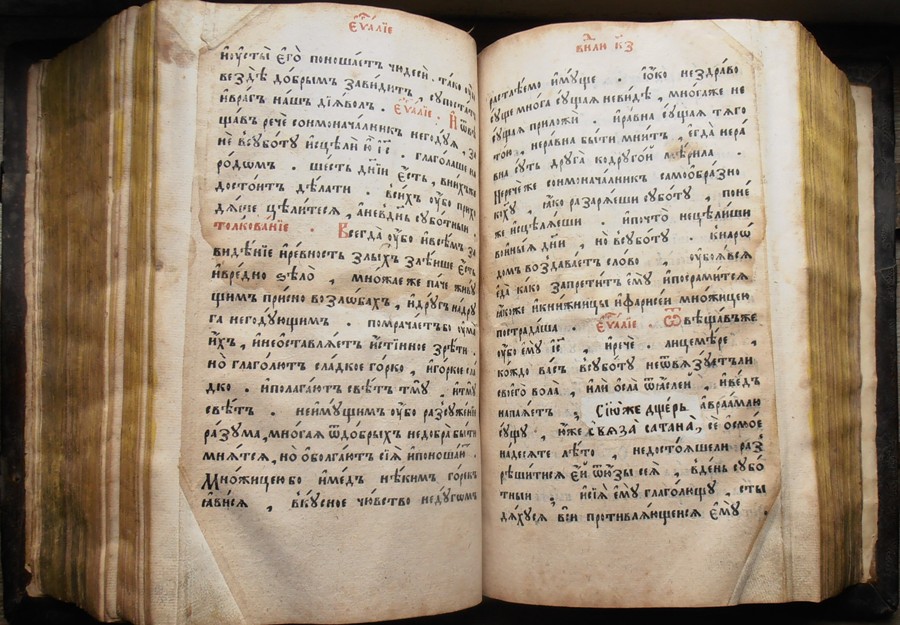 Є҆ѵⷢ҇алїе
и҆оу҆сты̀ є҆го̀ поношаетъ чюдесѝ . тако оу҆
вездѣ̀ добрымъ завидитъ , сꙋпостатъ
и҆врагъ нашъ дїѧволъ . Є҆ѵⷢ҇алїе . И҆ ѿвѣ
щавъ рече сонмоначалникъ негодꙋѧ , за
не всꙋботꙋ и҆сцелѝ ю҆ і҆с҃ . глаголаше на
родомъ . шесть дні́и є҆сть , внихже
достоитъ дѣлати . вси́хъ оу҆бо прихо
дѧще цели́тесѧ , а҆невдн҃ь сꙋботныи .
толкованїе . Всегда оу҆бо и҆всѣмъ за
видѣнїе и҆ревность злыхъ зачѧнше є҆сть
и҆вредно ѕѣло̀ , множае же паче живꙋ
щимъ присно возлобахъ , и҆дрꙋгънадрꙋ
га негодꙋющимъ . помрачаетъбо оу҆ма
и҆хъ , и҆неоставлѧетъ и҆стинное зрѣти .
но̀ глаголютъ сладкое го́рко , и҆го́ркое сла
дко . и҆полагаютъ свѣтъ тмꙋ̀ , и҆тмꙋ
свѣтъ . неи҆мꙋщимъ оу҆бо разсꙋженїи
разꙋма , многаѧ ѿдобрыхъ недобра̀ бы́ти
мнѧтсѧ , но̀ ѻ҆болгаютъ сїѧ̀ и҆поношаю .
Множицею бо и҆ медъ нѣкимъ горекъ
ꙗ҆висѧ , вкꙋсное чю́вство недꙋгомъ
ви҆ли к҃з
растаѧемо и҆мꙋще . ꙗ҆ко нездраво
сꙋще многа сꙋщаѧ невидѣ , многаже не
сꙋщаѧ приложѐ . и҆равна сꙋщаѧ тѧго
тою , неравна быти мнитъ , є҆гда̀ нера
вна сꙋть дрꙋга кодрꙋго́й мѣрила .
Нерече же сонмоначалникъ самоѻбразно
коꙋ , ꙗ҆ко разарѧеши сꙋботꙋ , поне
же и҆сцелѧеши . и҆почто̀ нецели́ши
вои́ныѧ дни , но̀ всꙋботꙋ . кнаро
домъ воздаваетъ слово , оу҆боѧвсѧ
є҆да̀ како запретитъ є҆мꙋ̀ и҆посрамитсѧ
ꙗ҆коже и҆книжницы и҆фарисеи множицею
пострадаша . Є҆ѵⷢ҇алїе . Ѿвѣщавъже
оу҆бо є҆мꙋ̀ і҆с҃ , и҆рече . лицемере ,
кождо васъ всꙋботꙋ неѿвѧзꙋетъли
своего вола̀ , и҆лѝ ѻ҆сла̀ ѿꙗ҆слей , и҆ведъ
напаѧетъ , Сїю же дщерь авраамлю
сꙋщꙋ , ю҆же свѧза̀ сатана̀ , се осмое
надесѧте лѣто , недостоѧшели раз
рѣшитисѧ є҆й ѿю҆зы сеѧ , вдень сꙋбо
тныи , и҆сїѧ̀ є҆мꙋ̀ глаголющꙋ , сты
дѧхꙋсѧ всѝ противлѧющеисѧ є҆мꙋ̀ .